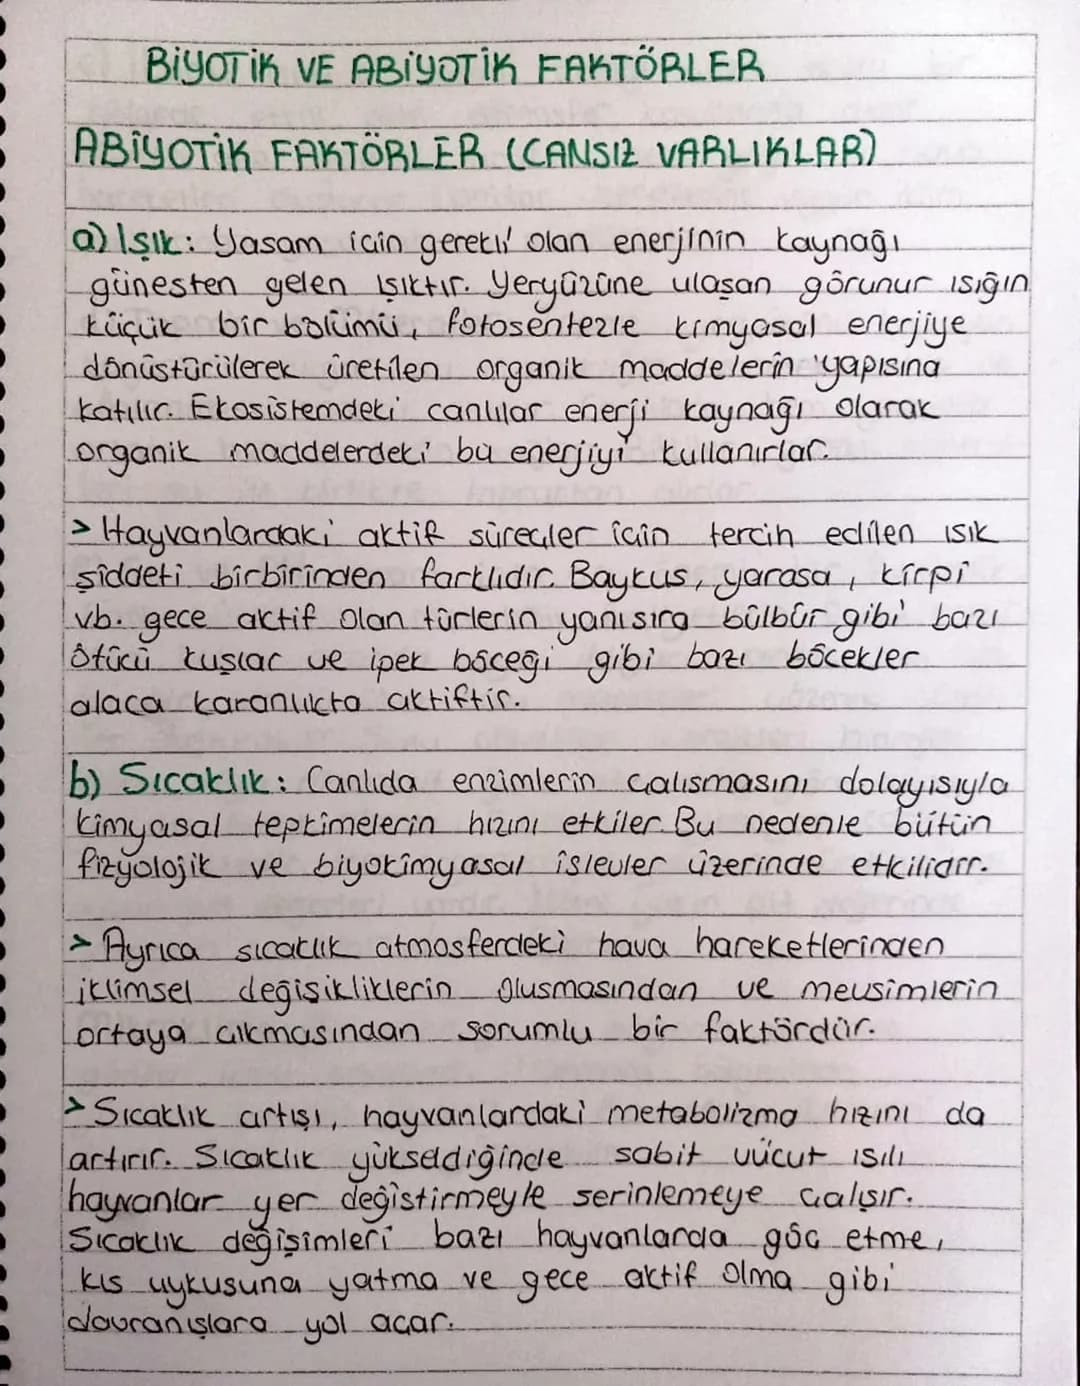 BİYOTİK VE ABİYOTİK FAKTÖRLER
ABİYOTİK FAKTÖRLER (CANSIZ VARLIKLAR)
a) Işık: Yaşam için gerekli olan enerjinin kaynağı
güneşten gelen ışıktır. Yeryüzüne ulaşan görünür ışığın
küçük bir bölümü, fotosentezle kimyasal enerjiye
dönüştürülerek üretilen organik maddelerin yapısına
katılır. Ekosistemdeki canlılar enerji kaynağı olarak
organik maddelerdeki bu enerjiyi kullanırlar.
> Hayvanlardaki aktif süreçler için tercih edilen ışık
şiddeti birbirinden farklıdır. Baykuş, yarasa, kirpi
vb. gece aktif olan türlerin yanısıra bülbür gibi bazı
ötücü kuşlar ve ipek böceği gibi bazı böcekler
alaca karanlıkta aktiftir.
b) Sıcaklık: Canlıda enzimlerin çalışmasını dolayısıyla
kimyasal tepkimelerin hızını etkiler. Bu nedenle bütün
fizyolojik ve biyokimyasal işlevler üzerinde etkilidir.
> Ayrıca sıcaklık atmosferdeki hava hareketlerinden
iklimsel değişikliklerin oluşmasından ve mevsimlerin
ortaya çıkmasından sorumlu bir faktördür.
> Sıcaklık artışı, hayvanlardaki metabolizma hızını da
artırır. Sıcaklık yükseldiğinde sabit vücut ısılı
hayvanlar yer değiştirmeyle serinlemeye çalışır.
Sıcaklık değişimleri bazı hayvanlarda göç etme,
kış uykusuna yatma ve gece aktif olma gibi
davranışlara yol açar.